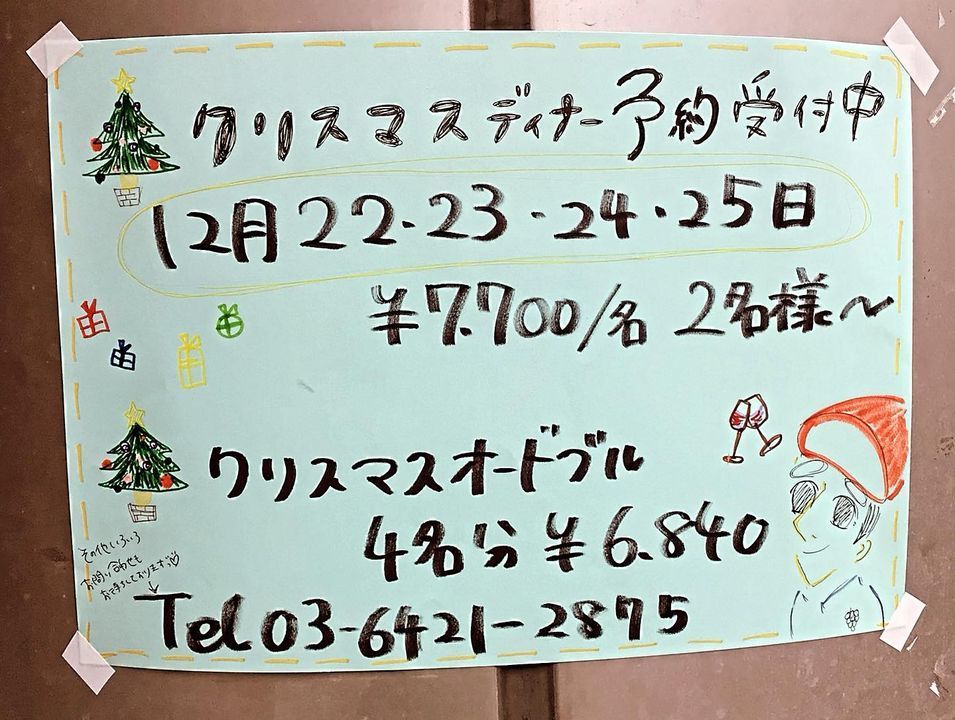 クリスマスディナー予約受付中
12月22・23・24・25日
¥7.700/名 2名様～
クリスマスオードブル
4名分 ¥6.840
その他いろいろ
お問い合わせも
お待ちしております♡
Tel 03-6421-2875